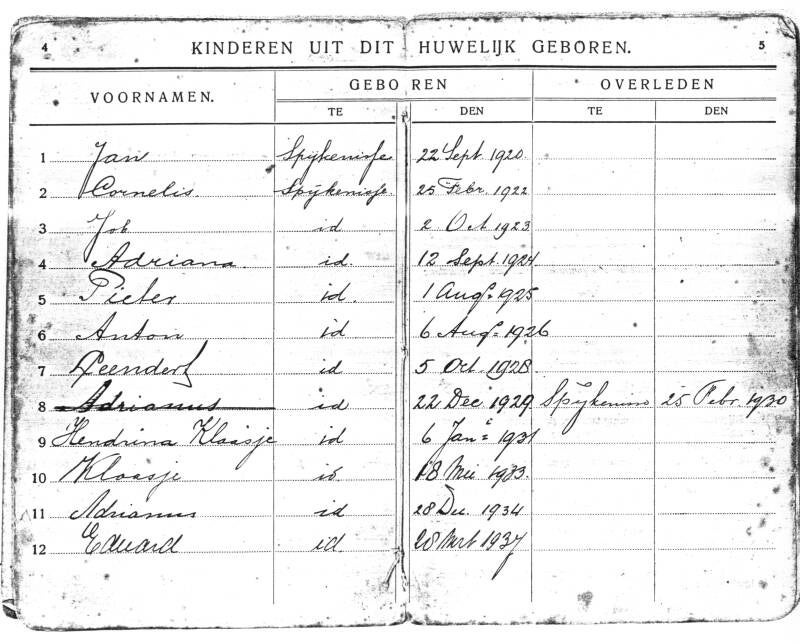 4 KINDEREN UIT DIT HUWELIJK GEBOREN. 5
VOORNAMEN. GEBOREN OVERLEDEN
TE DEN TE DEN
1 Jan Spijkenisse 22 Sept. 1920.
2 Cornelis. Spijkenisse. 25 Febr. 1922
3 Job id 2 Oct 1923
4 Adriana. id. 12 Sept. 1924
5 Pieter id. 1 Augs. 1925
6 Anton id 6 Augs. 1926
7 Leendert id 5 Oct 1928
8 Adrianus id 22 Dec 1929 25 Febr. 1930
9 Hendrina Klaasje id 6 Jan 1931
10 Klaasje id. 18 Mei 1933.
11 Adrianus id 28 Dec. 1934
12 Eduard id. 28 Mrt 1937